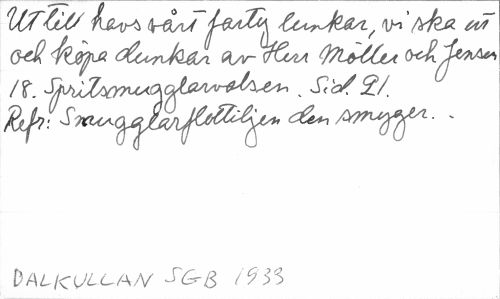 Ut till havs vårt farty lunkar, vi ska ut
och köpa dunkar av Herr Möller och Jensen
18. Spritsmugglarvalsen. Sid. 21.
Refr: Smugglarflottiljen den smyger. .
DALKULLAN SGB 1933